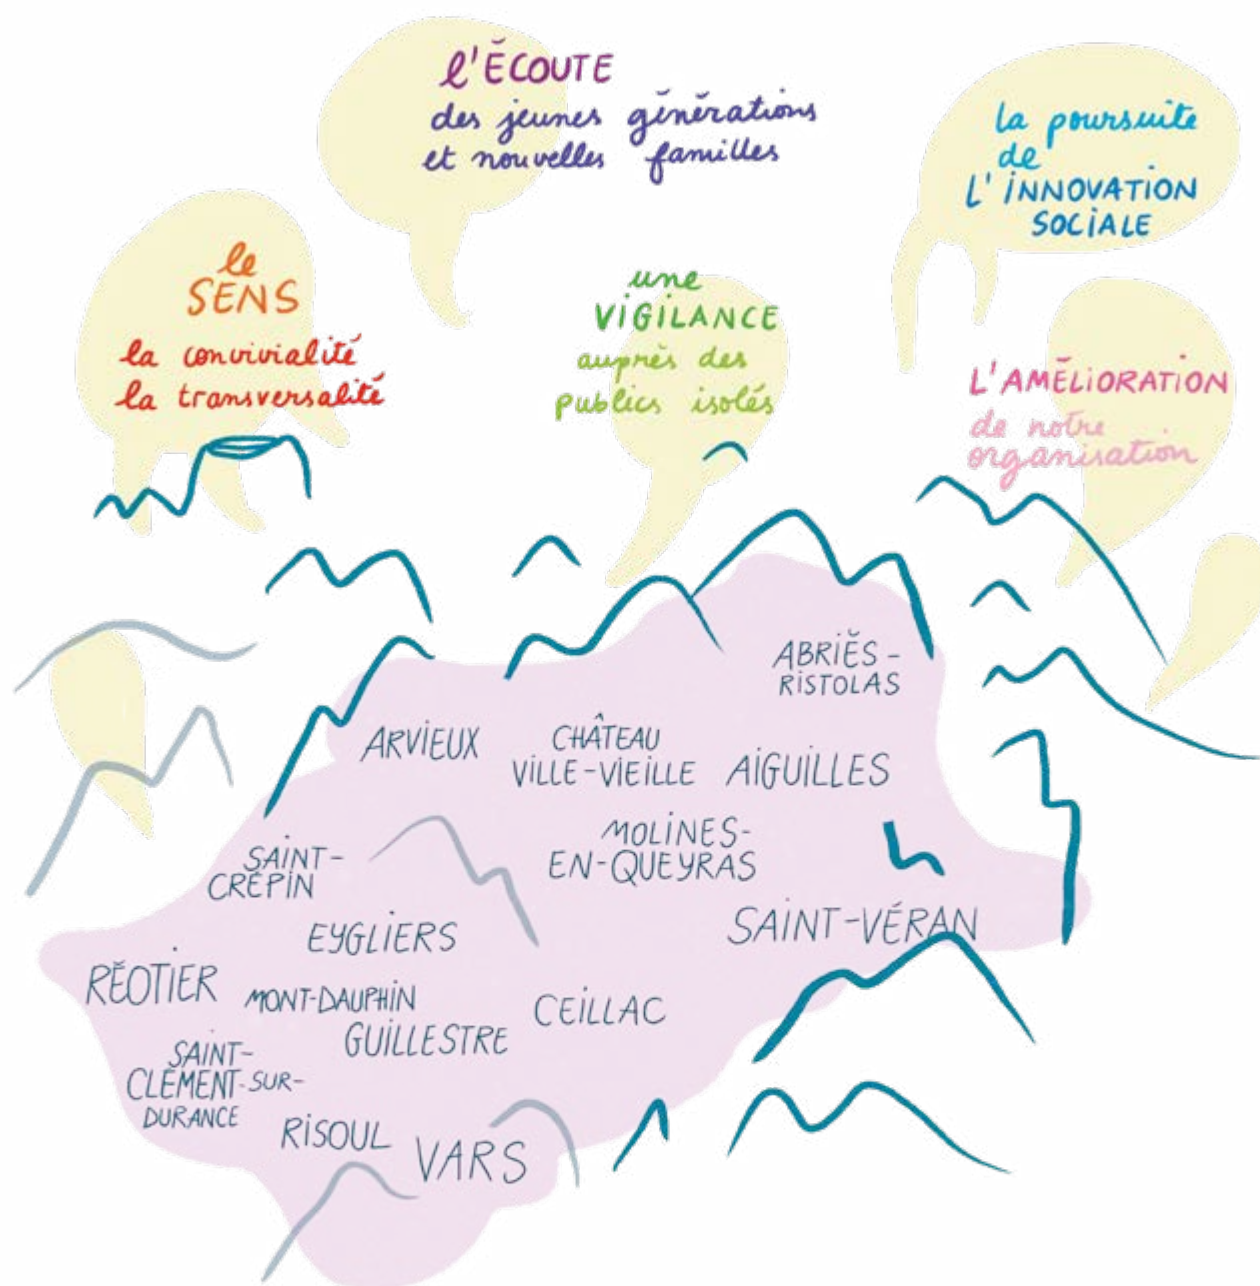 l'ÉCOUTE
des jeunes générations
et nouvelles familles
la poursuite
de
L'INNOVATION
SOCIALE
le
SENS
la convivialité
la transversalité
une
VIGILANCE
auprès des
publics isolés
L'AMÉLIORATION
de notre
organisation
ABRIÈS-
RISTOLAS
ARVIEUX
CHÂTEAU
VILLE-VIEILLE
AIGUILLES
MOLINES-
EN-QUEYRAS
SAINT-
CRÉPIN
EYGLIERS
SAINT-VÉRAN
RÉOTIER
MONT-DAUPHIN
GUILLESTRE
CEILLAC
SAINT-
CLÉMENT-SUR-
DURANCE
RISOUL
VARS